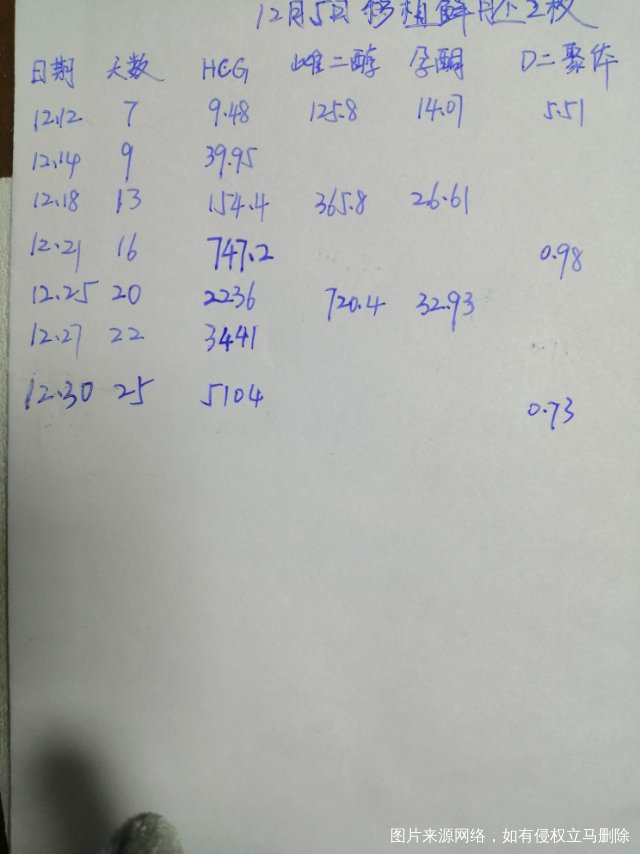 12月5日移植鲜胚2枚
日期 天数 HCG 雌二醇 孕酮 D二聚体
12.12 7 9.48 125.8 14.07 5.51
12.14 9 39.95
12.18 13 154.4 365.8 26.61
12.21 16 747.2 0.98
12.25 20 2236 720.4 32.93
12.27 22 3441
12.30 25 5104 0.73
图片来源网络，如有侵权立马删除